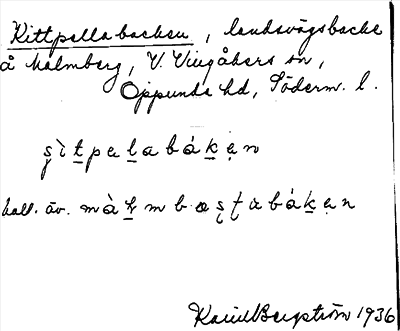 Kittpellabacken, landsvägsbacke
å Malmberg, V. Vingåkers sn,
Oppunda hd, Söderm. l.
ṣìtpelabákẹn
kall. äv. màḷmbæṣṭabákẹn
Karin Bergström 1936